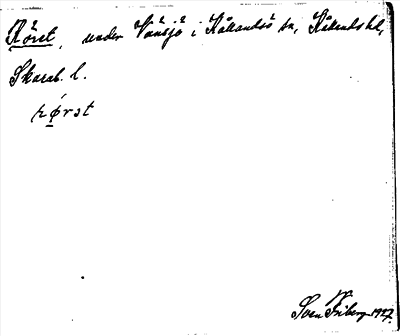 Röret, under Vänsjö i Kållandsö sn, Kållands hd,
Skarab. l.
rørət
Sven Friberg 1927.